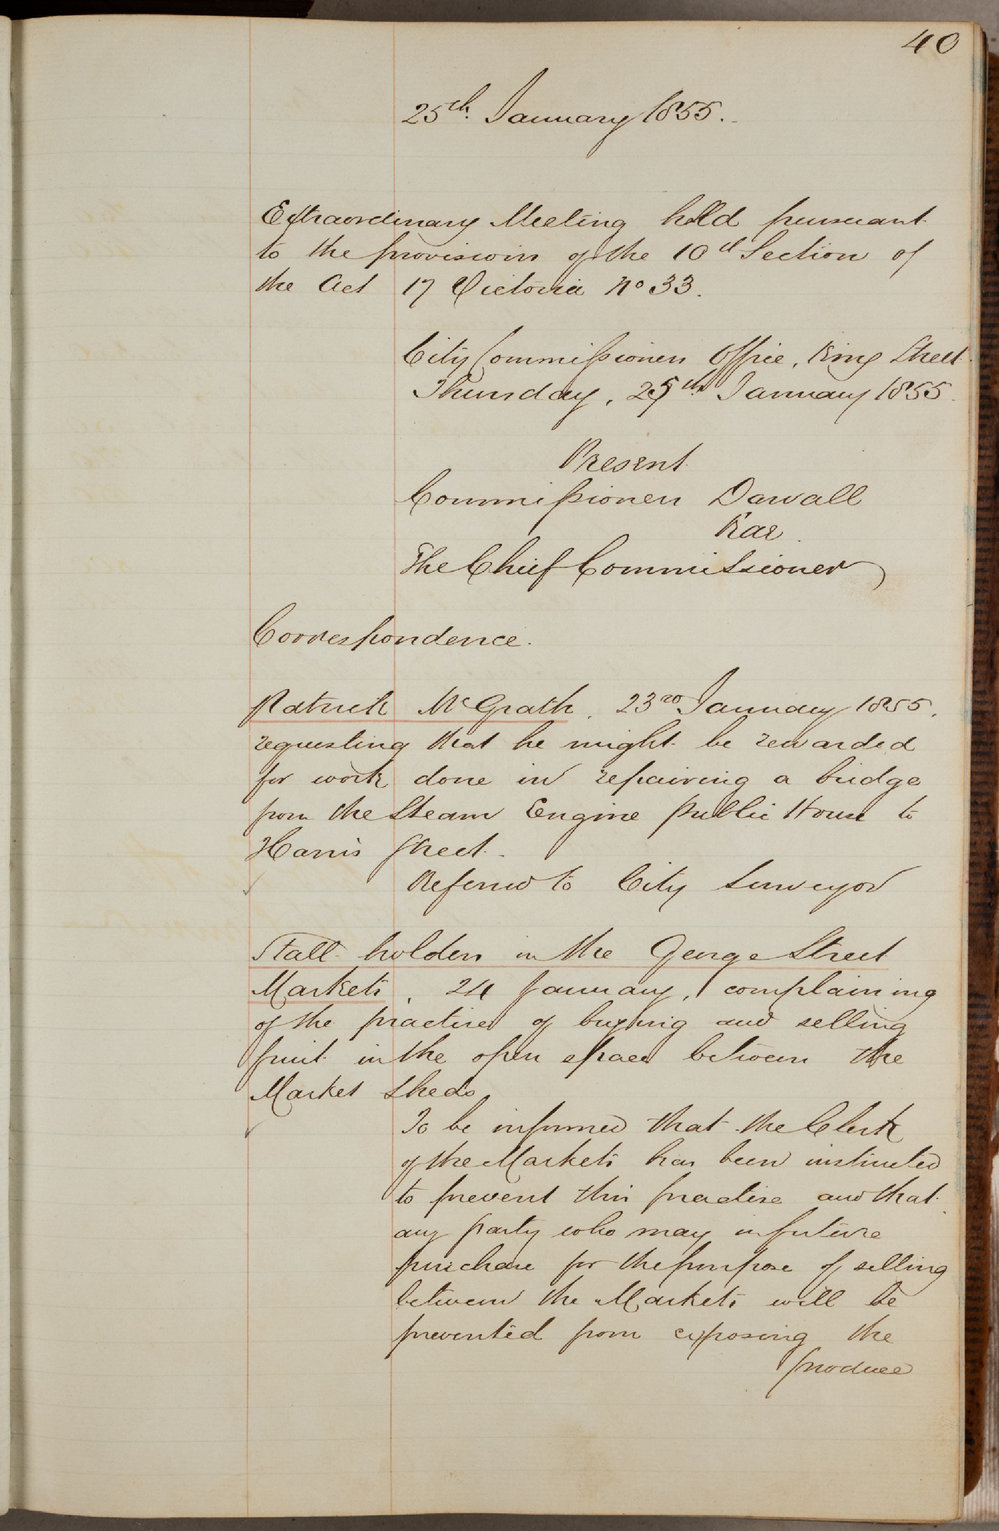 40
25th January 1855.
Extraordinary Meeting held pursuant
to the provisions of the 10th Section of
the Act 17 Victoria No 33.
City Commissioners Office, King Street
Thursday, 25th January 1855.
Present
Commissioners Darvall
Rae.
The Chief Commissioner
Correspondence.
Patrick McGrath. 23rd January 1855.
requesting that he might be rewarded
for work done in repairing a bridge
from the Steam Engine Public House to
Harris Street.
Referred to City Surveyor
Stall holders in the George Street
Markets, 24 January, complaining
of the practise of buying and selling
fruit in the open space between the
Market Sheds
To be informed that the Clerk
of the Markets has been instructed
to prevent this practise and that
any party who may in future
purchase for the purpose of selling
between the Markets will be
prevented from exposing the
produce